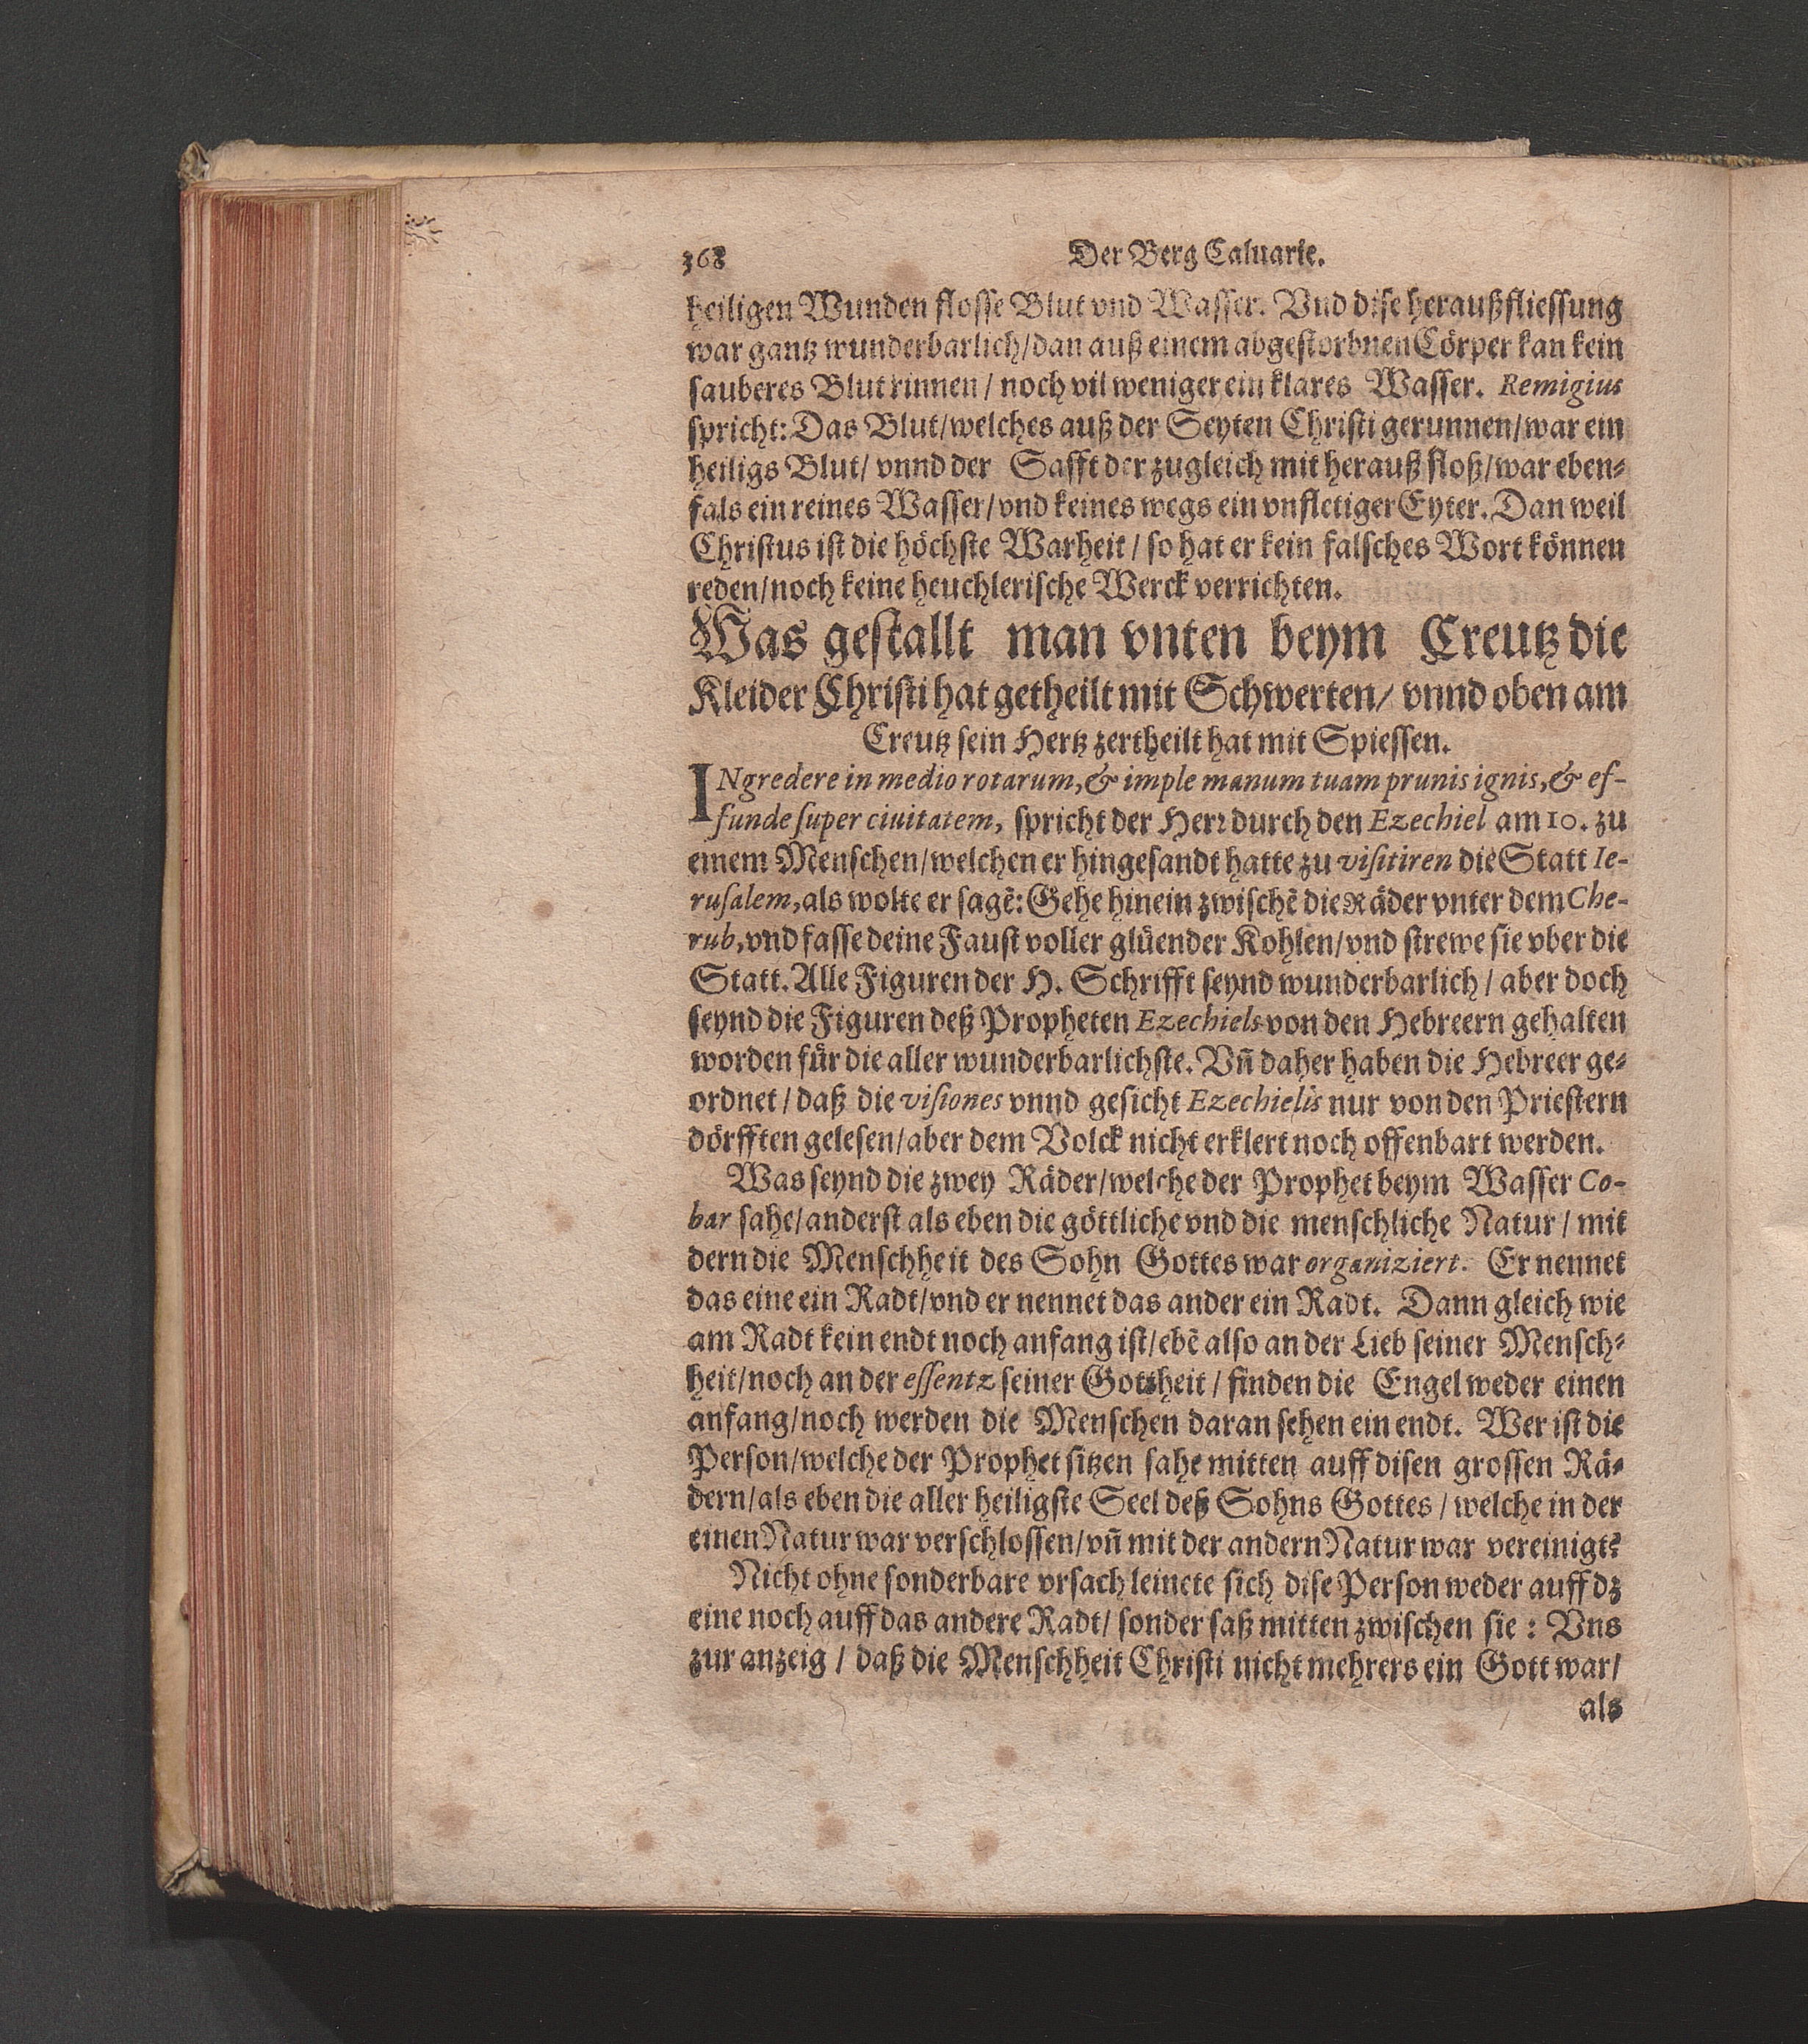 368 Der Berg Caluarie.
heiligen Wunden flosse Blut vnd Wasser. Vnd dise heraußfliessung
war gantz wunderbarlich/dan auß einem abgestorbnen Cörper kan kein
sauberes Blut rinnen / noch vil weniger ein klares Wasser. Remigius
spricht: Das Blut/welches auß der Seyten Christi gerunnen/war ein
heiligs Blut/ vnnd der Safft der zugleich mit herauß floß/war eben-
fals ein reines Wasser/vnd keines wegs ein vnfletiger Eyter. Dan weil
Christus ist die höchste Warheit / so hat er kein falsches Wort können
reden/noch keine heuchlerische Werck verrichten.
Was gestallt man vnten beym Creutz die
Kleider Christi hat getheilt mit Schwerten/ vnnd oben am
Creutz sein Hertz zertheilt hat mit Spiessen.
INgredere in medio rotarum, & imple manum tuam prunis ignis, & ef-
funde super ciuitatem, spricht der Herr durch den Ezechiel am 10. zu
einem Menschen/welchen er hingesandt hatte zu visitiren die Statt Ie-
rusalem, als wolte er sagē: Gehe hinein zwischē die Räder vnter dem Che-
rub, vnd fasse deine Faust voller glüender Kohlen/vnd strewe sie vber die
Statt. Alle Figuren der H. Schrifft seynd wunderbarlich / aber doch
seynd die Figuren deß Propheten Ezechiels von den Hebreern gehalten
worden für die aller wunderbarlichste. Vñ daher haben die Hebreer ge-
ordnet / daß die visiones vnnd gesicht Ezechielis nur von den Priestern
dörfften gelesen/aber dem Volck nicht erklert noch offenbart werden.
Was seynd die zwey Räder/welche der Prophet beym Wasser Co-
bar sahe/anderst als eben die göttliche vnd die menschliche Natur / mit
dern die Menschheit des Sohn Gottes war organiziert. Er nennet
das eine ein Radt/vnd er nennet das ander ein Radt. Dann gleich wie
am Radt kein endt noch anfang ist/ebē also an der Lieb seiner Mensch-
heit/noch an der essentz seiner Gottheit / finden die Engel weder einen
anfang/noch werden die Menschen daran sehen ein endt. Wer ist die
Person/welche der Prophet sitzen sahe mitten auff disen grossen Rä-
dern/als eben die aller heiligste Seel deß Sohns Gottes / welche in der
einen Natur war verschlossen/vñ mit der andern Natur war vereinigt?
Nicht ohne sonderbare vrsach leinete sich dise Person weder auff dz
eine noch auff das andere Radt/ sonder saß mitten zwischen sie : Vns
zur anzeig / daß die Menschheit Christi nicht mehrers ein Gott war/
als